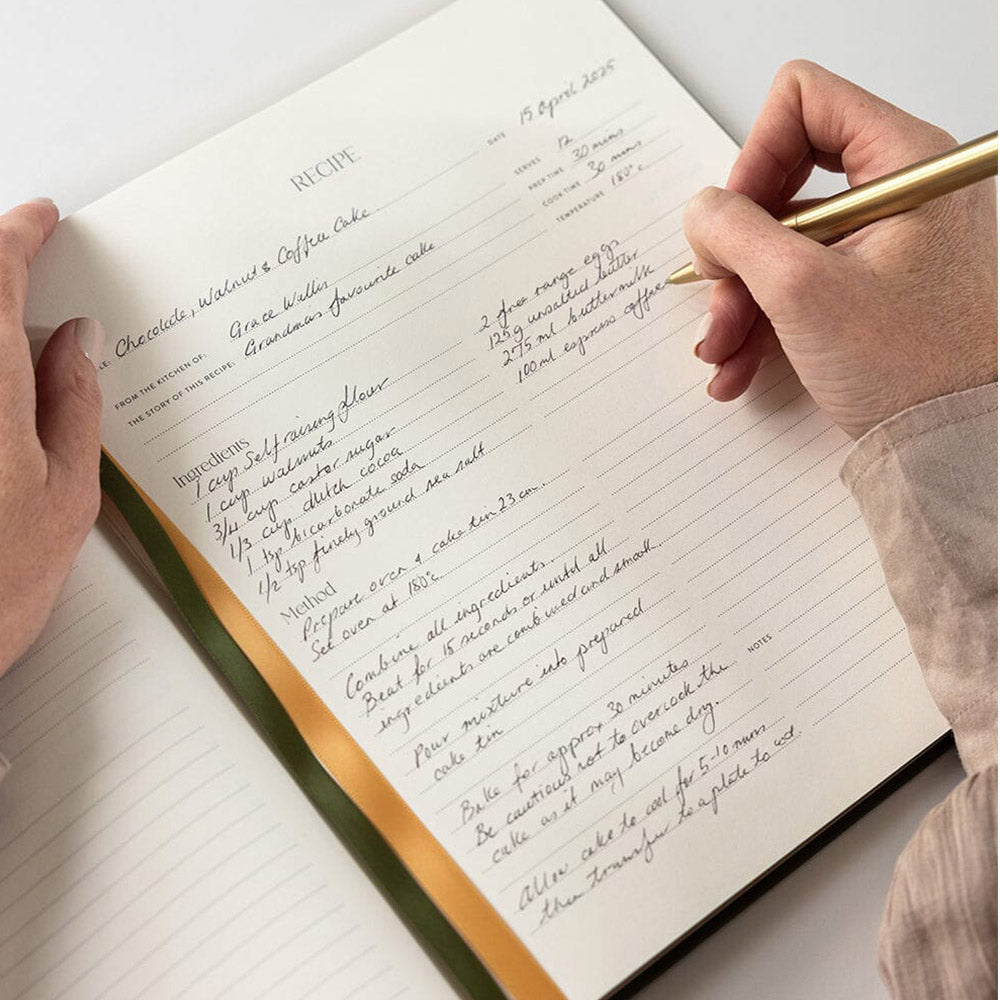 RECIPE
DATE 15 April 2025
SERVES 12
PREP TIME 30 mins
COOK TIME 30 mins
TEMPERATURE 180°c
LE: Chocolate, Walnut & Coffee Cake
FROM THE KITCHEN OF: Grace Wallis
THE STORY OF THIS RECIPE: Grandmas favourite cake
Ingredients
1 cup Self raising flour
1 cup walnuts
3/4 cup castor sugar
1/3 cup dutch cocoa
1 tsp bicarbonate soda
1/2 tsp finely ground sea salt
2 free range eggs
125g unsalted butter
275 ml buttermilk
100ml espresso coffee
Method
Prepare oven & cake tin 23 cm.
Set oven at 180°c
Combine all ingredients.
Beat for 15 seconds or until all
ingredients are combined and smooth.
Pour mixture into prepared
cake tin
Bake for approx 30 minutes
Be cautious not to overcook the
cake as it may become dry.
Allow cake to cool for 5-10 mins
then transfer to a plate to
NOTES